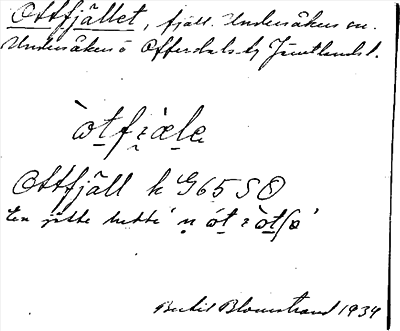 Ottfjället, fjäll. Undersåkers sn.
Undersåkers o Offerdals tg Jämtlands l.
òt̲fi̯æ̀l̲a
Ottfjäll k G65 SO
ten jätte hette n ót i òt̲ʃø
Bertil Blomstrand 1934